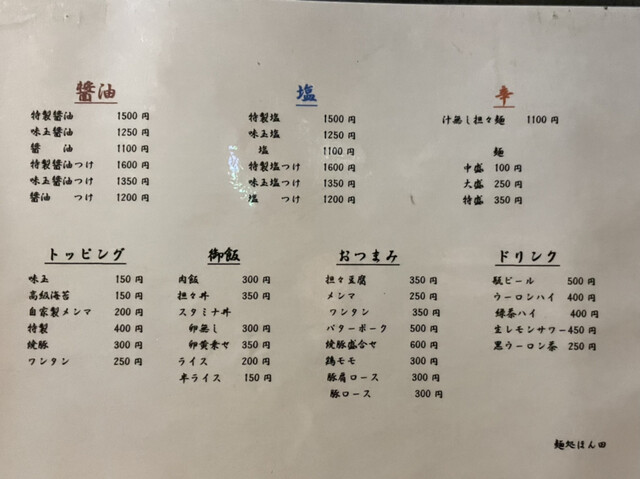 醤油
特製醤油 1500 円
味玉醤油 1250 円
醤 油 1100 円
特製醤油つけ 1600 円
味玉醤油つけ 1350 円
醤油 つけ 1200 円
塩
特製塩 1500 円
味玉塩 1250 円
塩 1100 円
特製塩つけ 1600 円
味玉塩つけ 1350 円
塩 つけ 1200 円
辛
汁無し担々麺 1100 円
麺
中盛 100 円
大盛 250 円
特盛 350 円
トッピング
味玉 150 円
高級海苔 150 円
自家製メンマ 200 円
特製 400 円
焼豚 300 円
ワンタン 250 円
御飯
肉飯 300 円
担々丼 350 円
スタミナ丼
卵無し 300 円
卵黄乗せ 350 円
ライス 200 円
半ライス 150 円
おつまみ
担々豆腐 350 円
メンマ 250 円
ワンタン 350 円
バターポーク 500 円
焼豚盛合せ 600 円
鶏モモ 300 円
豚肩ロース 300 円
豚ロース 300 円
ドリンク
瓶ビール 500 円
ウーロンハイ 400 円
緑茶ハイ 400 円
生レモンサワー450 円
黒ウーロン茶 250 円
麺処ほん田